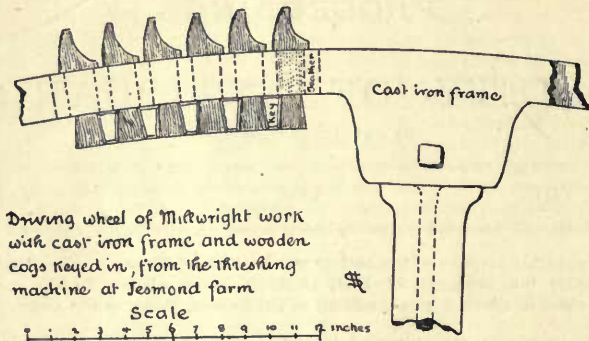 Socket
Cast iron frame
Key
Driving wheel of Millwright work
with cast iron frame and wooden
cogs keyed in, from the threshing
machine at Jesmond farm
Scale
0 1 2 3 4 5 6 7 8 9 10 11 12 inches